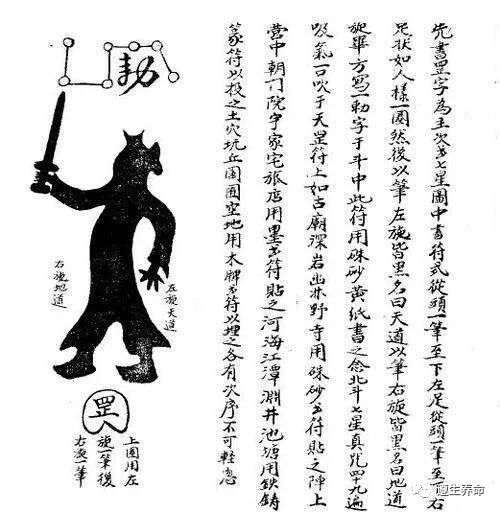 先書罡字為主次書七星圖中書符式從頭一筆至下左足從頭一筆至下右
足狀如人樣一圈然後以筆左旋皆黑名曰天道以筆右旋皆黑名曰地道
旋畢方寫一勅字于斗中此符用硃砂黃紙書之念北斗七星真咒四十九遍
吸氣一口吹于天罡符上如古廟深岩幽林野寺用硃砂書符貼之陣上
營中朝門院宇家宅旅店用墨書符貼之河海江潭淵井池塘用鉄鋳
篆符以投之土穴坑丘園囿空地用木牌書符以埋之各有次序不可輕忽
勅
左旋天道
右旋地道
罡
上圈用左
旋一筆後
右旋一筆
生养命